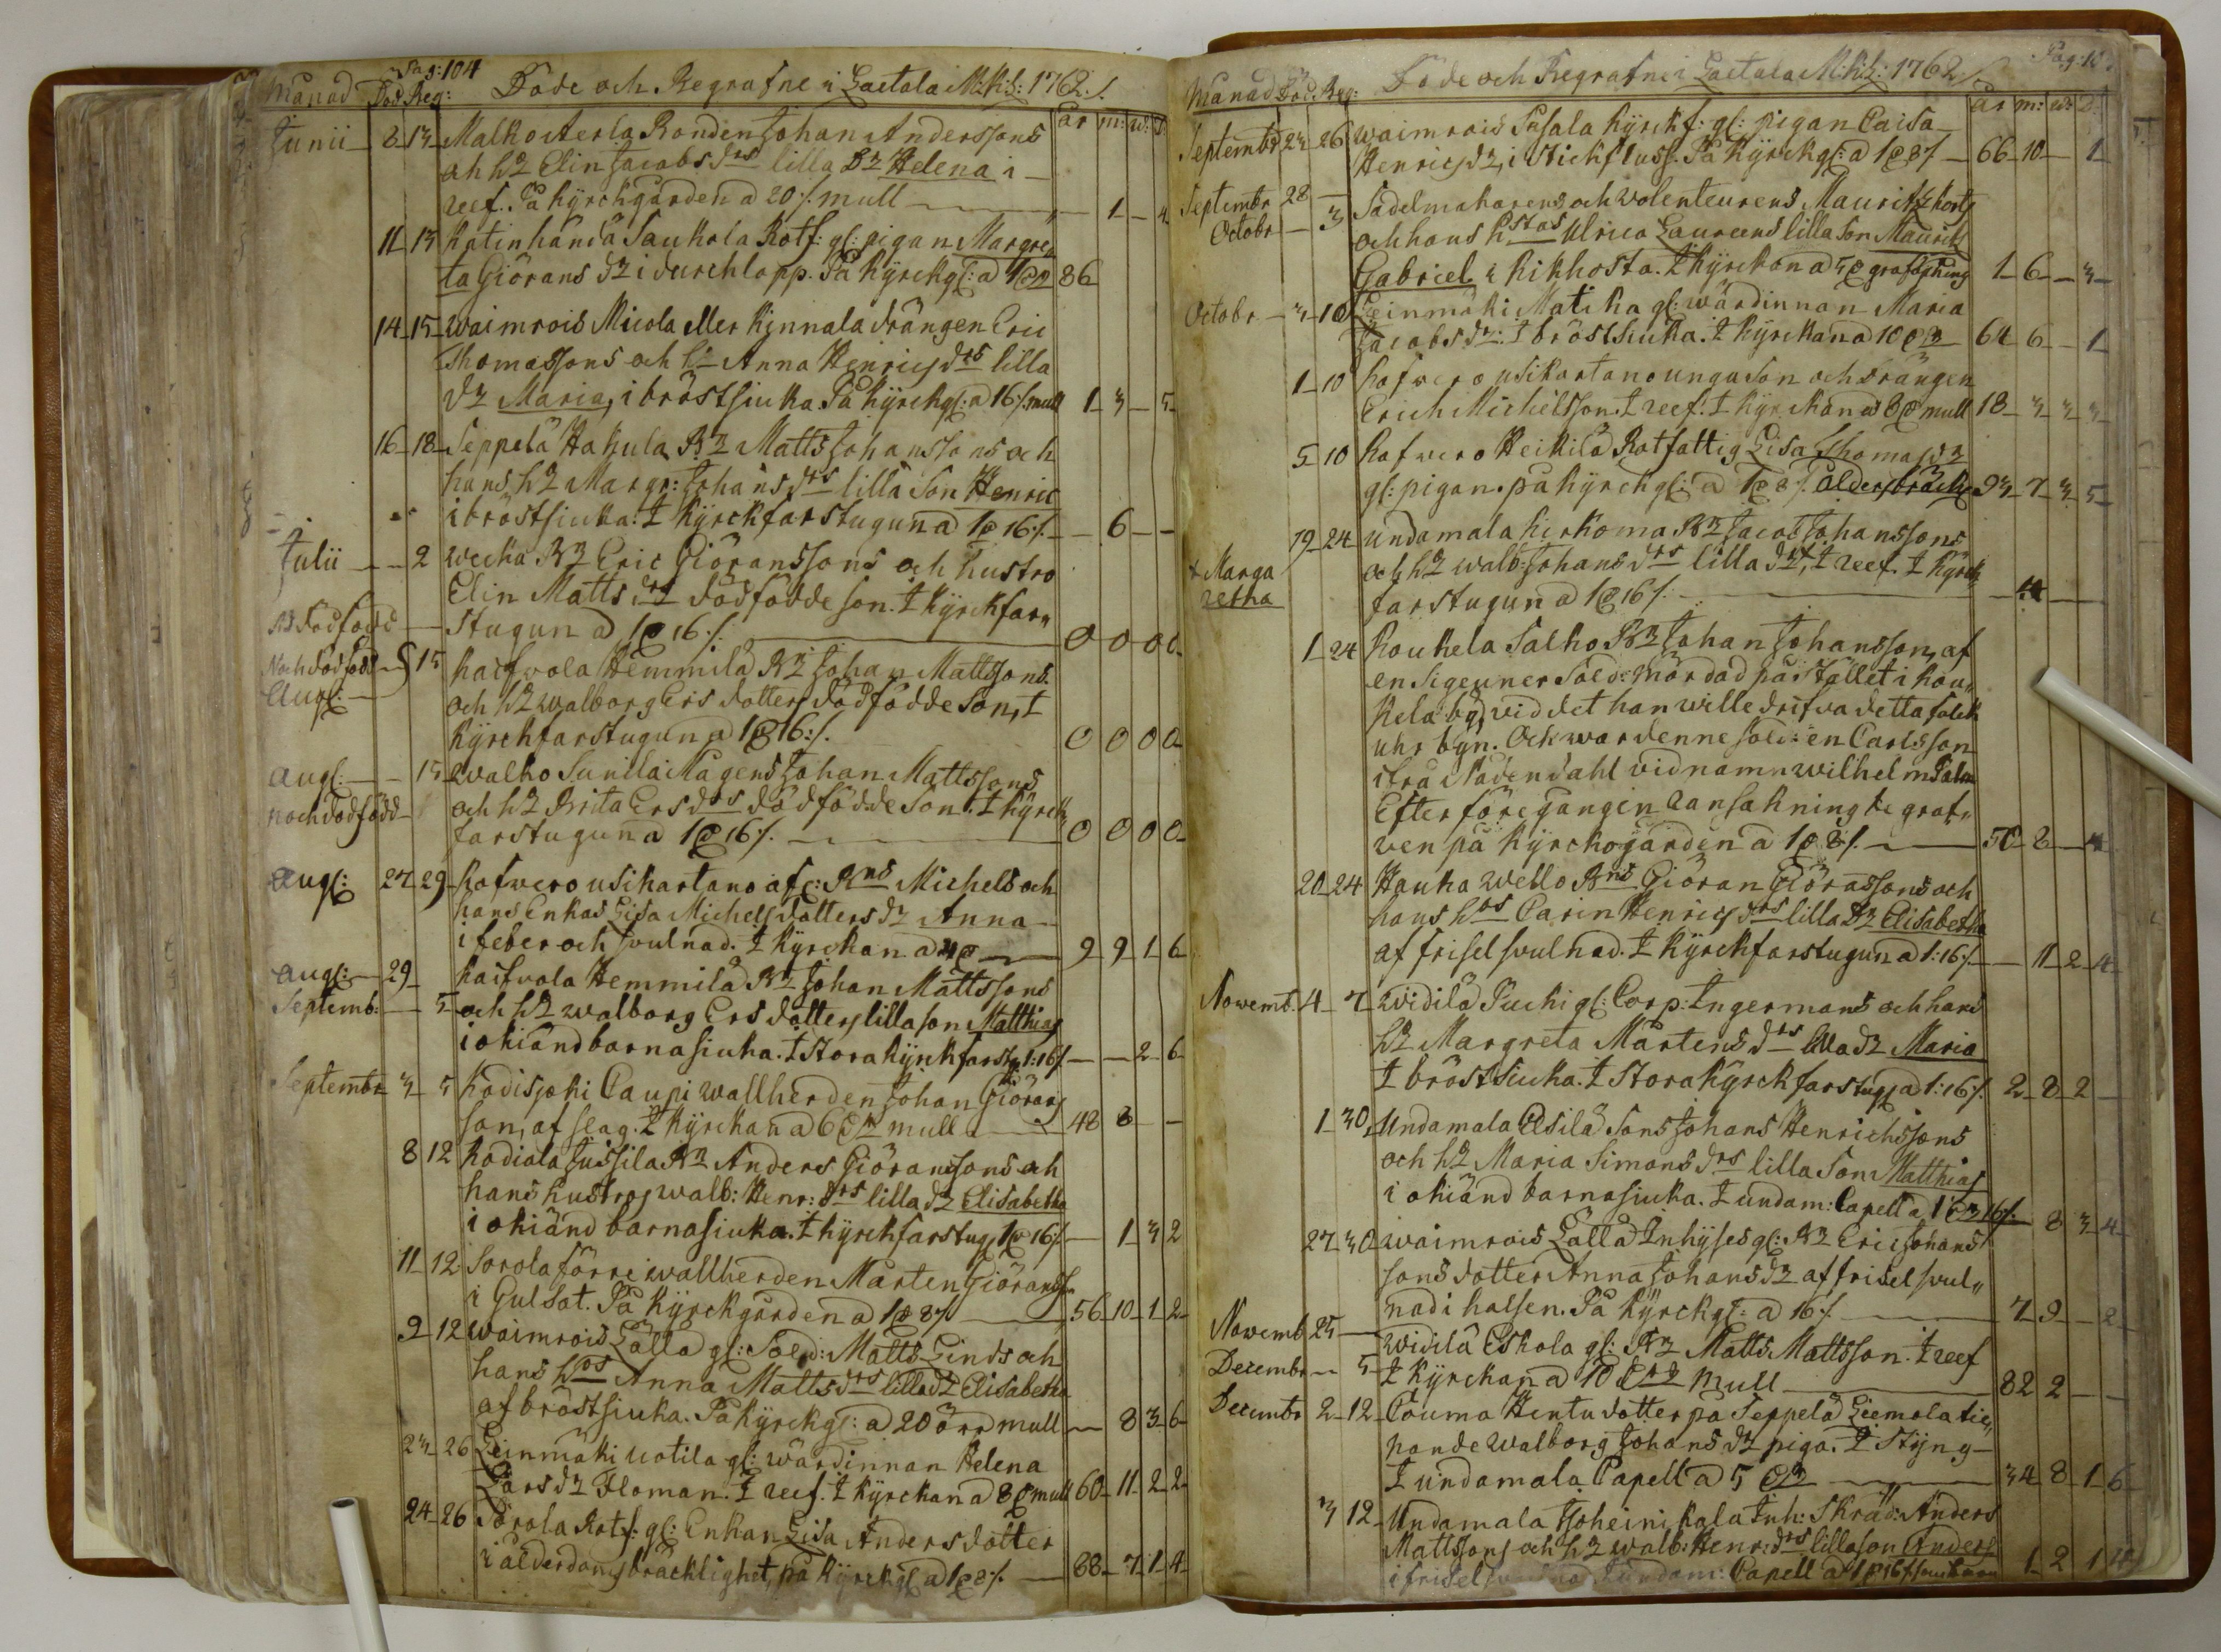 Pag: 104
Månad Död Beg: Döde och Begrafne i Laetala M:K:S: 1762 ./.
år m: w: D:
Junii 8 13 Malko Aerla Bonden Johan Anderssons
och h: Elin Jacobs drs lilla Dr Helena i
reef. På kyrckgården a 20 ./. mull 1 4
11 13 Katinhanda Saukola Rotf: gl: pigan Margre„
ta Giörans dr i durchlopp. På kyrckg: a 86
14 15 waimrois Micola eller Kynnala drängen Eric
Thomassons och h: Anna Henrics drs lilla
dr Maria, i bröstsiuka På kyrckg: a 16 ./. mull 1 3 5
16 18 Seppelä Hakula Br Matts Johanssons och
hans h: Margr: Johans drs lilla Son Henric
i bröstsiuka. I kyrckfarstugun a 1 16 ./. 6
Julii 2 wecka Br Eric Giöranssons och hustro
Elin Matts drs dödfödde son. I kyrckfar„
NB dödfödd stugun a 1 16 ./. 0 0 0 0
Noch dödfödd 15 kaifvola Hemmilä Br Johan Mattssons
Aug: och h: walborg Ers dotters dödfödde Son, I
kyrckfarstugun a 1 16 ./. 0 0 0 0
Aug: 15 walko Sunila Mågens Johan Mattssons
noch dödfödd och h: Brita Ers drs dödfödde Son. I kyrck
farstugun a 1 16 ./. 0 0 0 0
Aug: 27 29 Hafwero usikartano afl: Bns Michels och
hans Enkas Lisa Michels dotters dr Anna
i feber och svulnad. I kyrckan a 9 9 1 6
Aug: 29 kaifvola Hemmilä Br Johan Mattssons
Septemb: 5 och h: walborg Ers dotters lilla son Matthias
i okiänd barnasiuka. I stora kyrckfarst: 1:16 ./. 2 6
Septembr 3 5 Kodisjoki Caupi wallherden Johan Giörans
son, af slag. I kyrckan a 6 mull 48 8
8 12 kodiala Jussila Br Anders Giöranssons och
hans hustros walb: Henr: drs lilla dr Elisabetha
i okiänd barnasiuka. I kyrckfarstug: 1 16 ./. 1 3 2
11 12 Sorola förre wallherden Mårten Giöransson
i Gulsot. På kyrckgården a 1 8 ./. 56 10 1 2
9 12 waimrois Lälla gl: Sold: Matts Linds och
hans hos Anna Matts drs lilla dr Elisabetha
af bröstsiuka. På kyrckg: a 20 öre mull 8 3 6
23 26 Leinmäki uotila gl: wärdinnan Helena
Lars dr Floman. I reef. I kyrckan a 8 mull 60 11 2 2
24 26 Sorola Rotf: gl: Enkan Lisa Anders dotter
i ålderdoms bräcklighet, på kyrckg: a 1 8 ./. 88 7 1 4
Pag: 10
Månad Död. Beg: Döde och Begrafne i Laetala M:K:S: 1762 ./.
år m: w: D:
Septembr 23 26 waimrois Sasala kyrckf: gl: pigan Caisa
Henrics dr, i Stickfluss. På kyrckg: a 1 8 ./. 66 10 1
Septembr 28 Sadelmakarens och wolenteurens Mauritz
Octobr 3 och hans hstos Ulrica Laureens lilla son Maurits
Gabriel i kikhosta. I kyrckan a 5 1 6 3
Octobr 3 10 Leinmäki Matika gl: wärdinnan Maria
Jacobs dr: I bröstsiuka. I kyrckan a 10 64 6 1
1 10 hafwero usikartano unga son och drängen
Erich Michelsson. I reef. I kyrckan a 8 mull 18 3 3 3
5 10 hafwero Heikilä Rotfattig Lisa Thomas dr
gl: pigan. på kyrckg: a 1 8 ./. ålders bräckl: 93 7 3 5
19 24 undamala kirkoma Br Jacob Johanssons
Marga och h: walb: Johans drs lilla dr, I reef. I kyrck
retha farstugun a 1 16 ./. 4
1 24 Koukela Salko Br Johan Johansson, af
en Sigeuner Sold: mördad på stället i kou„
kela by, vid det han wille drifva detta folck
uhr byn. Och war denne sold: en Carlsson
ifrå Nådendahl vid namn wilhelm Palm
Efter föregången ransakning begraf„
ven på kyrckogården a 1 8 ./. 50 2 4
20 24 Hauka wello Bns Giöran Giörassons och
hans hos Carin Henrics drs lilla Dr Elisabetha
af frisel svulnad. I kyrckfarstugun a 1:16 ./. 11 2 4
Nowemb. 4 7 widilä Puckigl: Corp: Ingermans och hans
hr Margreta Mårtens drs lilla dr Maria
I bröstsiuka. I stora kyrckfarstug: a 1:16 ./. 2 8 2
1 30 Undamala Elsilä Sons Johans Henrichssons
och h: Maria Simons drs lilla Son Matthias
i okiänd barnasiuka. I undam: Capell a 1 16 ./. 8 3 4
27 30 waimrois Lälla Inhyses gl: Br Eric Johans
sons dotter Anna Johans dr af frisel svul„
nad i halsen. På kyrckg: a 16 ./. 7 9 2
Nowemb 25 widilä Eskola gl: Br Matts Mattsson. I reef
Decembr 5 I kyrckan a 10 mull 82 2
Decembr 2 12 Couma Hentu dotter på Seppelä Liemola tie„
nande walborg Johans dr piga. I Styng
I undamala Capell a 5 34 8 1 6
3 12 Undamala Isoheinikala Inh: Skräd: Anders
Mattssons och h: walb: Henr: drs lilla son Anders
i frisel undam: Capell a 1 16 ./. 1 2 1